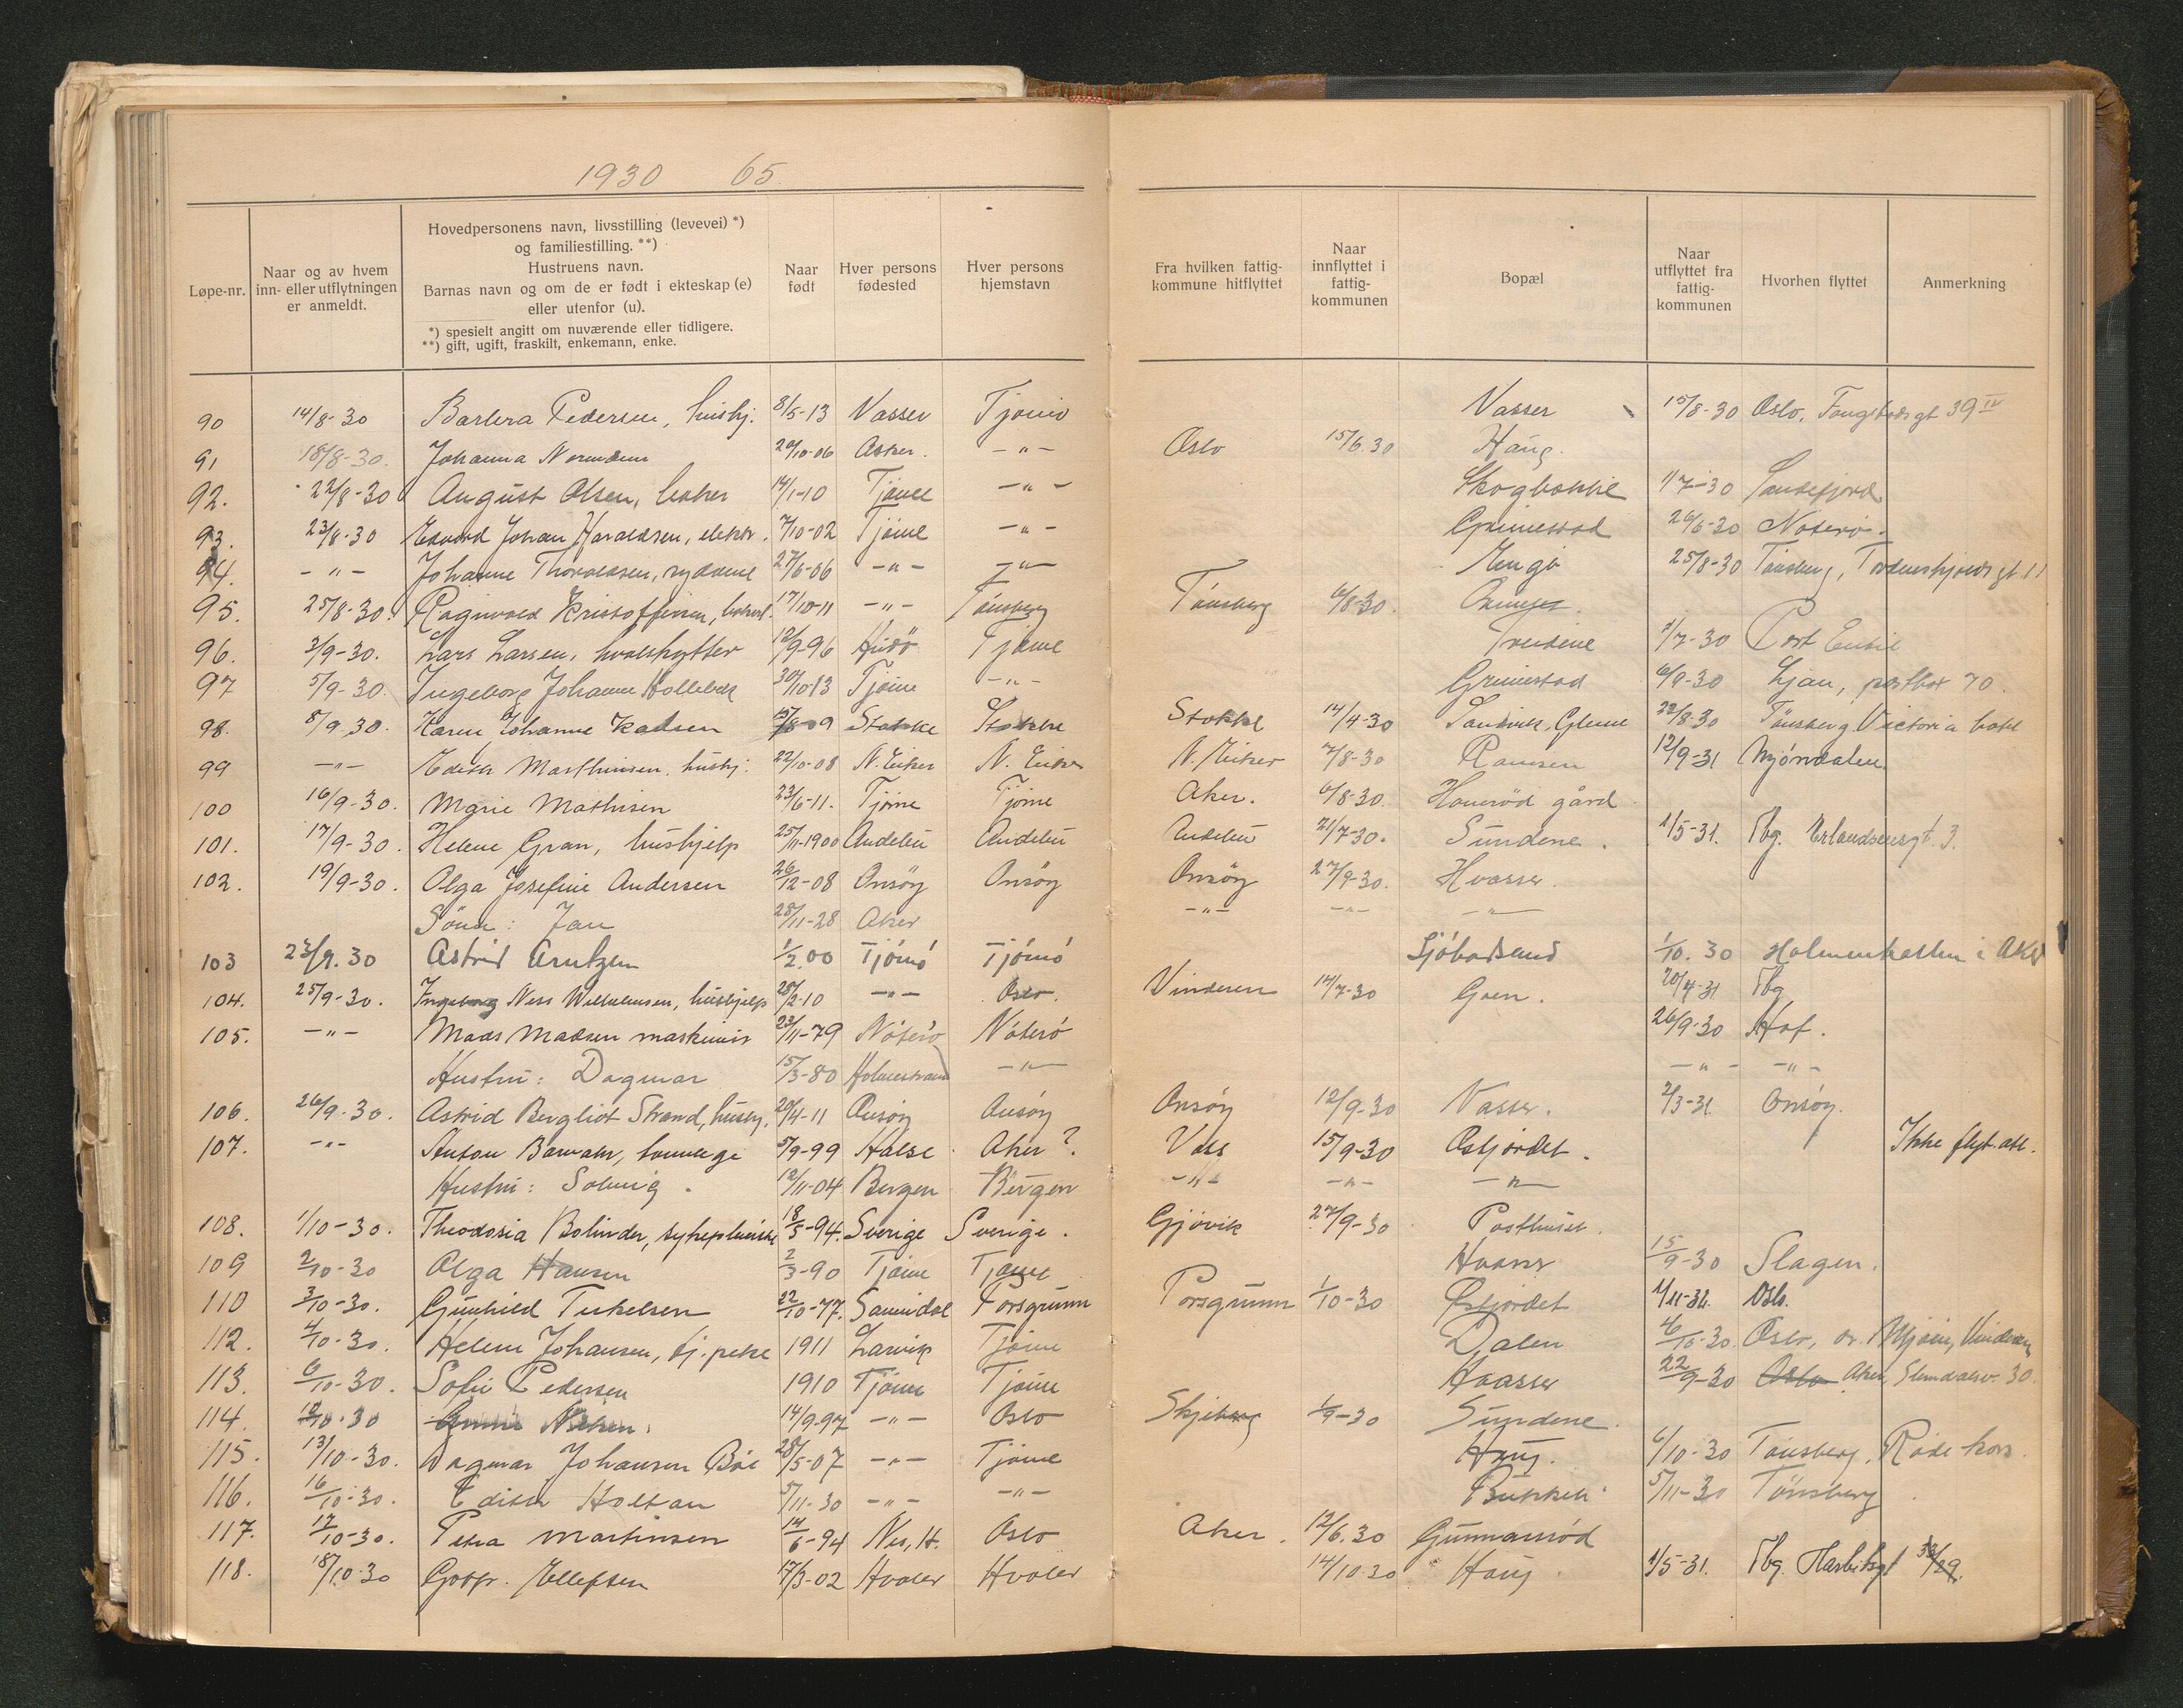 1930 65.
Løpe-nr.
Naar og av hvem inn- eller utflytningen er anmeldt.
Hovedpersonens navn, livsstilling (levevei) *) og familiestilling. **)
Hustruens navn.
Barnas navn og om de er født i ekteskap (e) eller utenfor (u).
*) spesielt angitt om nuværende eller tidligere.
**) gift, ugift, fraskilt, enkemann, enke.
Naar født
Hver persons fødested
Hver persons hjemstavn
Fra hvilken fattig-kommune hitflyttet
Naar innflyttet i fattig-kommunen
Bopæl
Naar utflyttet fra fattig-kommunen
Hvorhen flyttet
Anmerkning
90 14/8-30 Barbra Pedersen, hushj. 8/5-13 Vasser Tjømø Vasser 15/8-30 Oslo, 39 IV
91 18/8-30. Johanna 20/10-06 Asker. -"- Oslo 15/6.30 Haug.
92. 22/8-30 August Olsen, baker 14/1-10 Tjøme -"- Skogbakke 1/7-30 Sandefjord
93. 23/8-30 Edvard Johan Haraldsen, elektr. 7/10-02 Tjøme -"- Grimestad 26/6-30 Nøterø.
94. -"- Johanne Thorvaldsen, 27/6-06 -"- -"- Engø 25/8-30 Tønsberg, Tordenskjolds gt 11
95. 25/8-30. Ragnvald Kristoffersen, 17/10-11 -"- Tønsberg Tønsberg 6/8-30.
96. 3/9-30. Lars Larsen, hvalskytter 12/9-96 Hvidø Tjøme Treidene 1/7-30 Port
97 5/9-30. Ingeborg Johanne Holleb 30/10-13 Tjøme -"- Grimestad 6/9-30 Ljan, postbox 70.
98. 8/9.30. Karen Johanne Karlsen 15/8-09 Stokke Stokke Stokke 14/4-30 Sandvik, Glenne 22/8-30 Tønsberg Victoria hotel
99 -"- Edith Marthinsen, hushj. 22/10-08 N. Eiker N. Eiker N. Eiker 7/8-30 Ramsen 12/9-31 Mjøndalen
100 16/9-30. Marie Mathisen 23/6-11. Tjøme Tjøme Aker. 6/8-30. Honerød gård
101. 17/9-30. Helene Gran, hushjelp 25/11-1900 Andebu Andebu Andebu 21/7-30. Sundene. 1/5-31. Tbg. Erlandsensgt. 3.
102. 19/9-30. Olga Josefine Andersen 26/12-08 Onsøy Onsøy Onsøy 27/9-30. Hvasser.
Sønn: Jan 28/11-28 Aker -"- -"- -"-
103 23/9.30 Astrid Arntzen 1/2.00 Tjömö Tjömö Sjöbodsand 1/10.30 Holmenkollen i Aker
104. 25/9-30. Ingeborg Ness Wilhelmsen, hushjelp 28/2-10 -"- Oslo. Vinderen 14/7-30 Goen. 20/4-31 Tbg
105. -"- Mads Madsen maskinist 23/11-79 Nøterø Nøterø 26/9-30 Hof.
Hustru: Dagmar 15/3-80 Holmestrand -"- -"- -"-
106. 26/9-30. Astrid Bergliot Strand, hushj. 20/4-11 Onsøy Onsøy Onsøy 12/9-30 Vasser. 2/3-31. Onsøy.
107. -"- Anton tannlege 5/9-99 Halse Aker?. Voss 15/9-30 Østjordet. Ikke flyt. att.
Hustru: Solveig. 12/11-04 Bergen Bergen -"- -"- -"-
108. 1/10-30. Theodosia Bolinder, sykepleierske 18/5-94. Sverige Sverige. Gjøvik 27/9-30 Posthuset.
109 2/10-30 Olga Hansen 2/3-90 Tjøme Tjøme Hvasser 15/9-30 Slagen.
110 3/10-30. Gunhild Terkelsen 22/10-77. Porsgrunn Porsgrunn 1/10-30 Østjordet 1/11-31. Oslo.
112. 4/10-30. Helene Johansen, tj.peke 1911 Larvik Tjøme Dalen 4/10-30 Oslo, dr. Mjøen, Vinderen
113. 6/10-30. Sofie Pedersen 1910 Tjøme Tjøme Hvasser 22/9-30 Oslo Aker, Slemdalsv. 30.
114. 10/10-30 14/9-97 -"- Oslo Skjeberg 1/9-30 Sundene.
115. 13/10-30. Dagmar Johansen Bøe 28/5-07 -"- Tjøme Haug. 6/10-30 Tønsberg, Røde kors.
116. 16/10-30. Edith Holtan 5/11-30 -"- -"- Bukken 5/11-30 Tönsberg
117. 17/10-30. Petra Martinsen 14/6-94 Nes, H. Oslo Aker. 12/6.30 Gunnarsrød
118. 18/10-30 Ellefsen 17/3-02 Hvaler Hvaler 14/10-30 Haug 1/5-31. Tbg. 33/29.